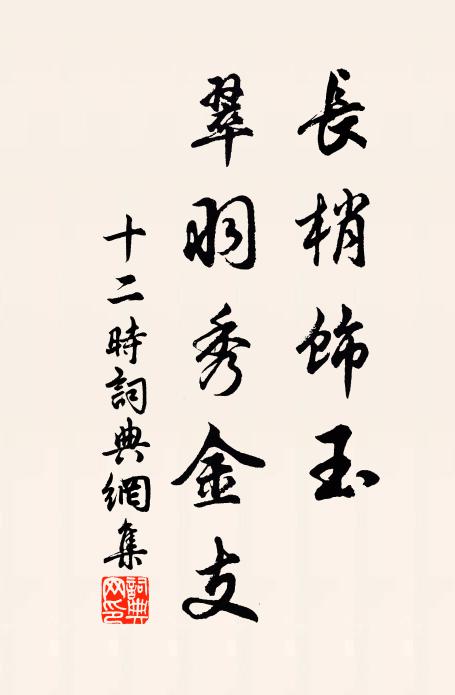 長梢飾玉
翠羽秀金支
十二時詞典網集
詞典网印